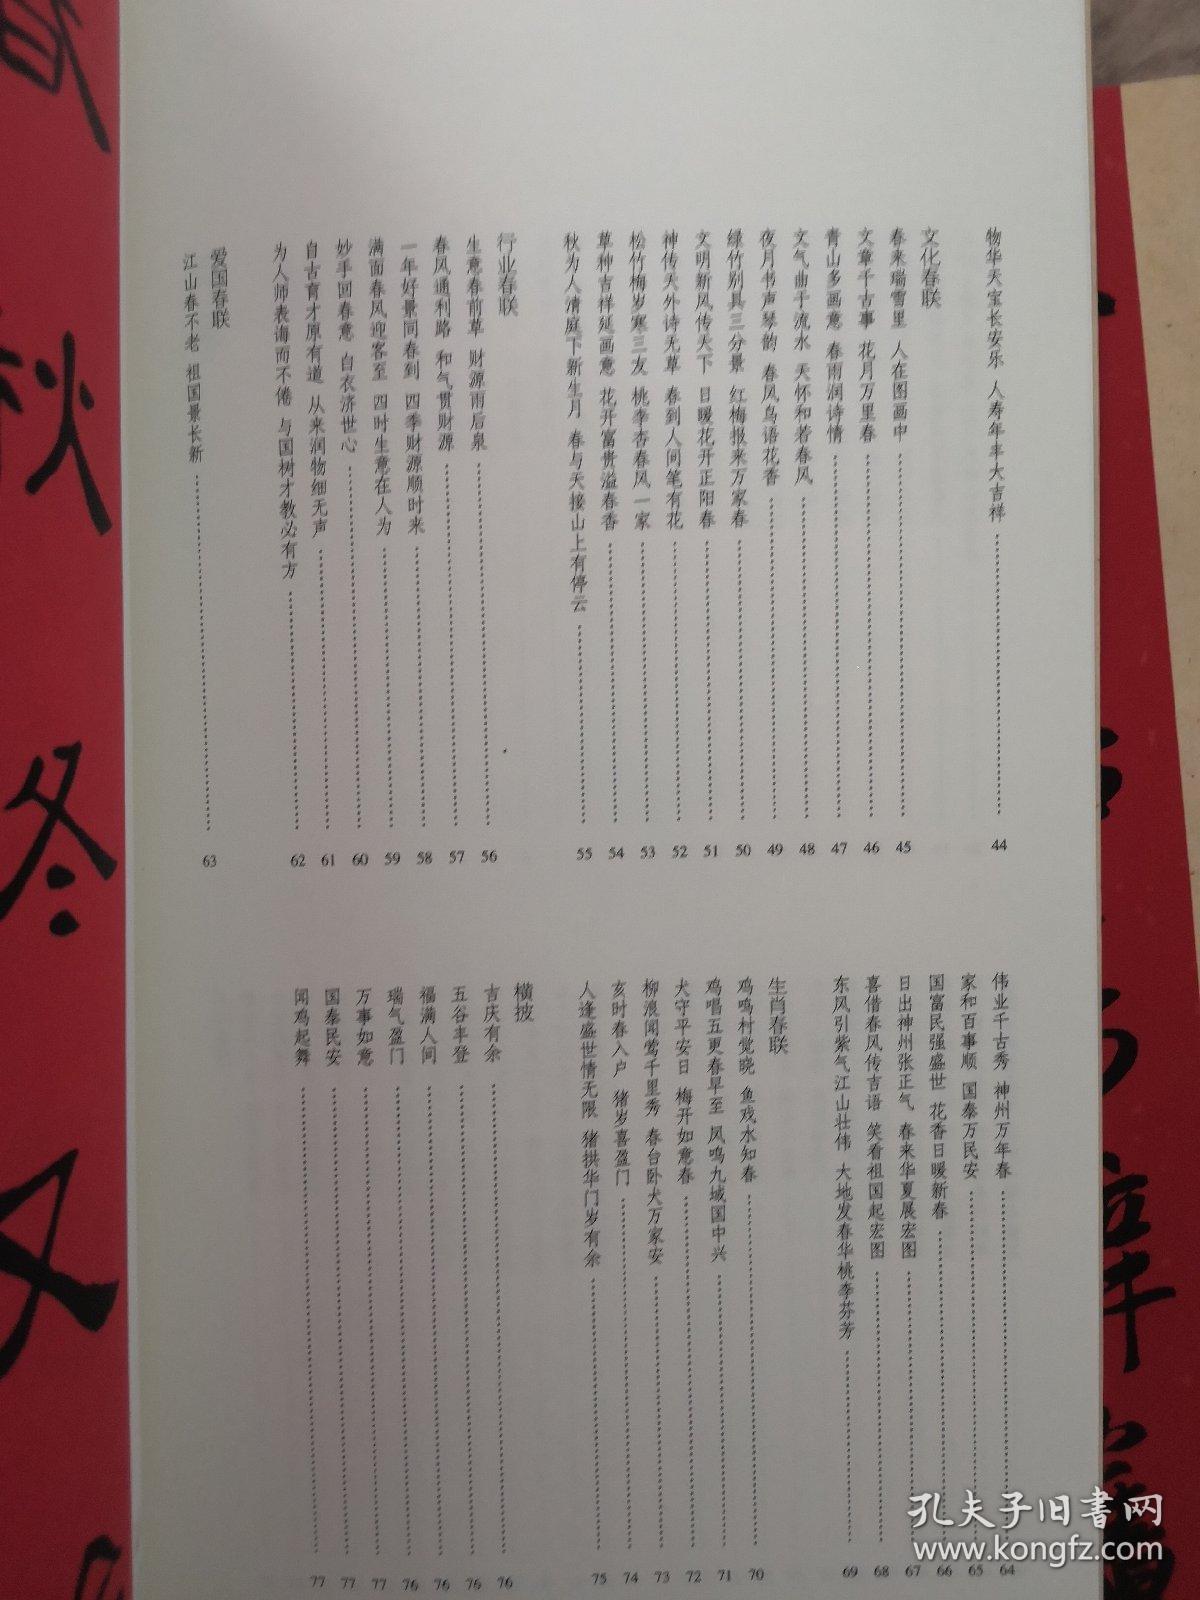 物华天宝长安乐 人寿年丰大吉祥 44
文化春联
春来瑞雪里 人在图画中 45
文章千古事 花月万里春 46
青山多画意 春雨润诗情 47
文气曲于流水 天怀和若春风 48
夜月书声琴韵 春风鸟语花香 49
绿竹别具三分景 红梅报来万家春 50
文明新风传天下 日暖花开正阳春 51
神传天外诗无草 春到人间笔有花 52
松竹梅岁寒三友 桃李杏春风一家 53
草种吉祥延画意 花开富贵溢春香 54
秋为人清庭下新生月 春与天接山上有停云 55
行业春联
生意春前草 财源雨后泉 56
春风通利路 和气贯财源 57
一年好景同春到 四季财源顺时来 58
满面春风迎客至 四时生意在人为 59
妙手回春意 白衣济世心 60
自古育才原有道 从来润物细无声 61
为人师表诲而不倦 与国树才教必有方 62
爱国春联
江山春不老 祖国景长新 63
伟业千古秀 神州万年春 64
家和百事顺 国泰万民安 65
国富民强盛世 花香日暖新春 66
日出神州张正气 春来华夏展宏图 67
喜借春风传吉语 笑看祖国起宏图 68
东风引紫气江山壮伟 大地发春华桃李芬芳 69
生肖春联
鸡鸣村觉晓 鱼戏水知春 70
鸡唱五更春早至 凤鸣九域国中兴 71
犬守平安日 梅开如意春 72
柳浪闻莺千里秀 春台卧犬万家安 73
亥时春入户 猪岁喜盈门 74
人逢盛世情无限 猪拱华门岁有余 75
横披
吉庆有余 76
五谷丰登 76
福满人间 76
瑞气盈门 76
万事如意 77
国泰民安 77
闻鸡起舞 77
秋
冬
又
孔夫子旧书网
www.kongfz.com